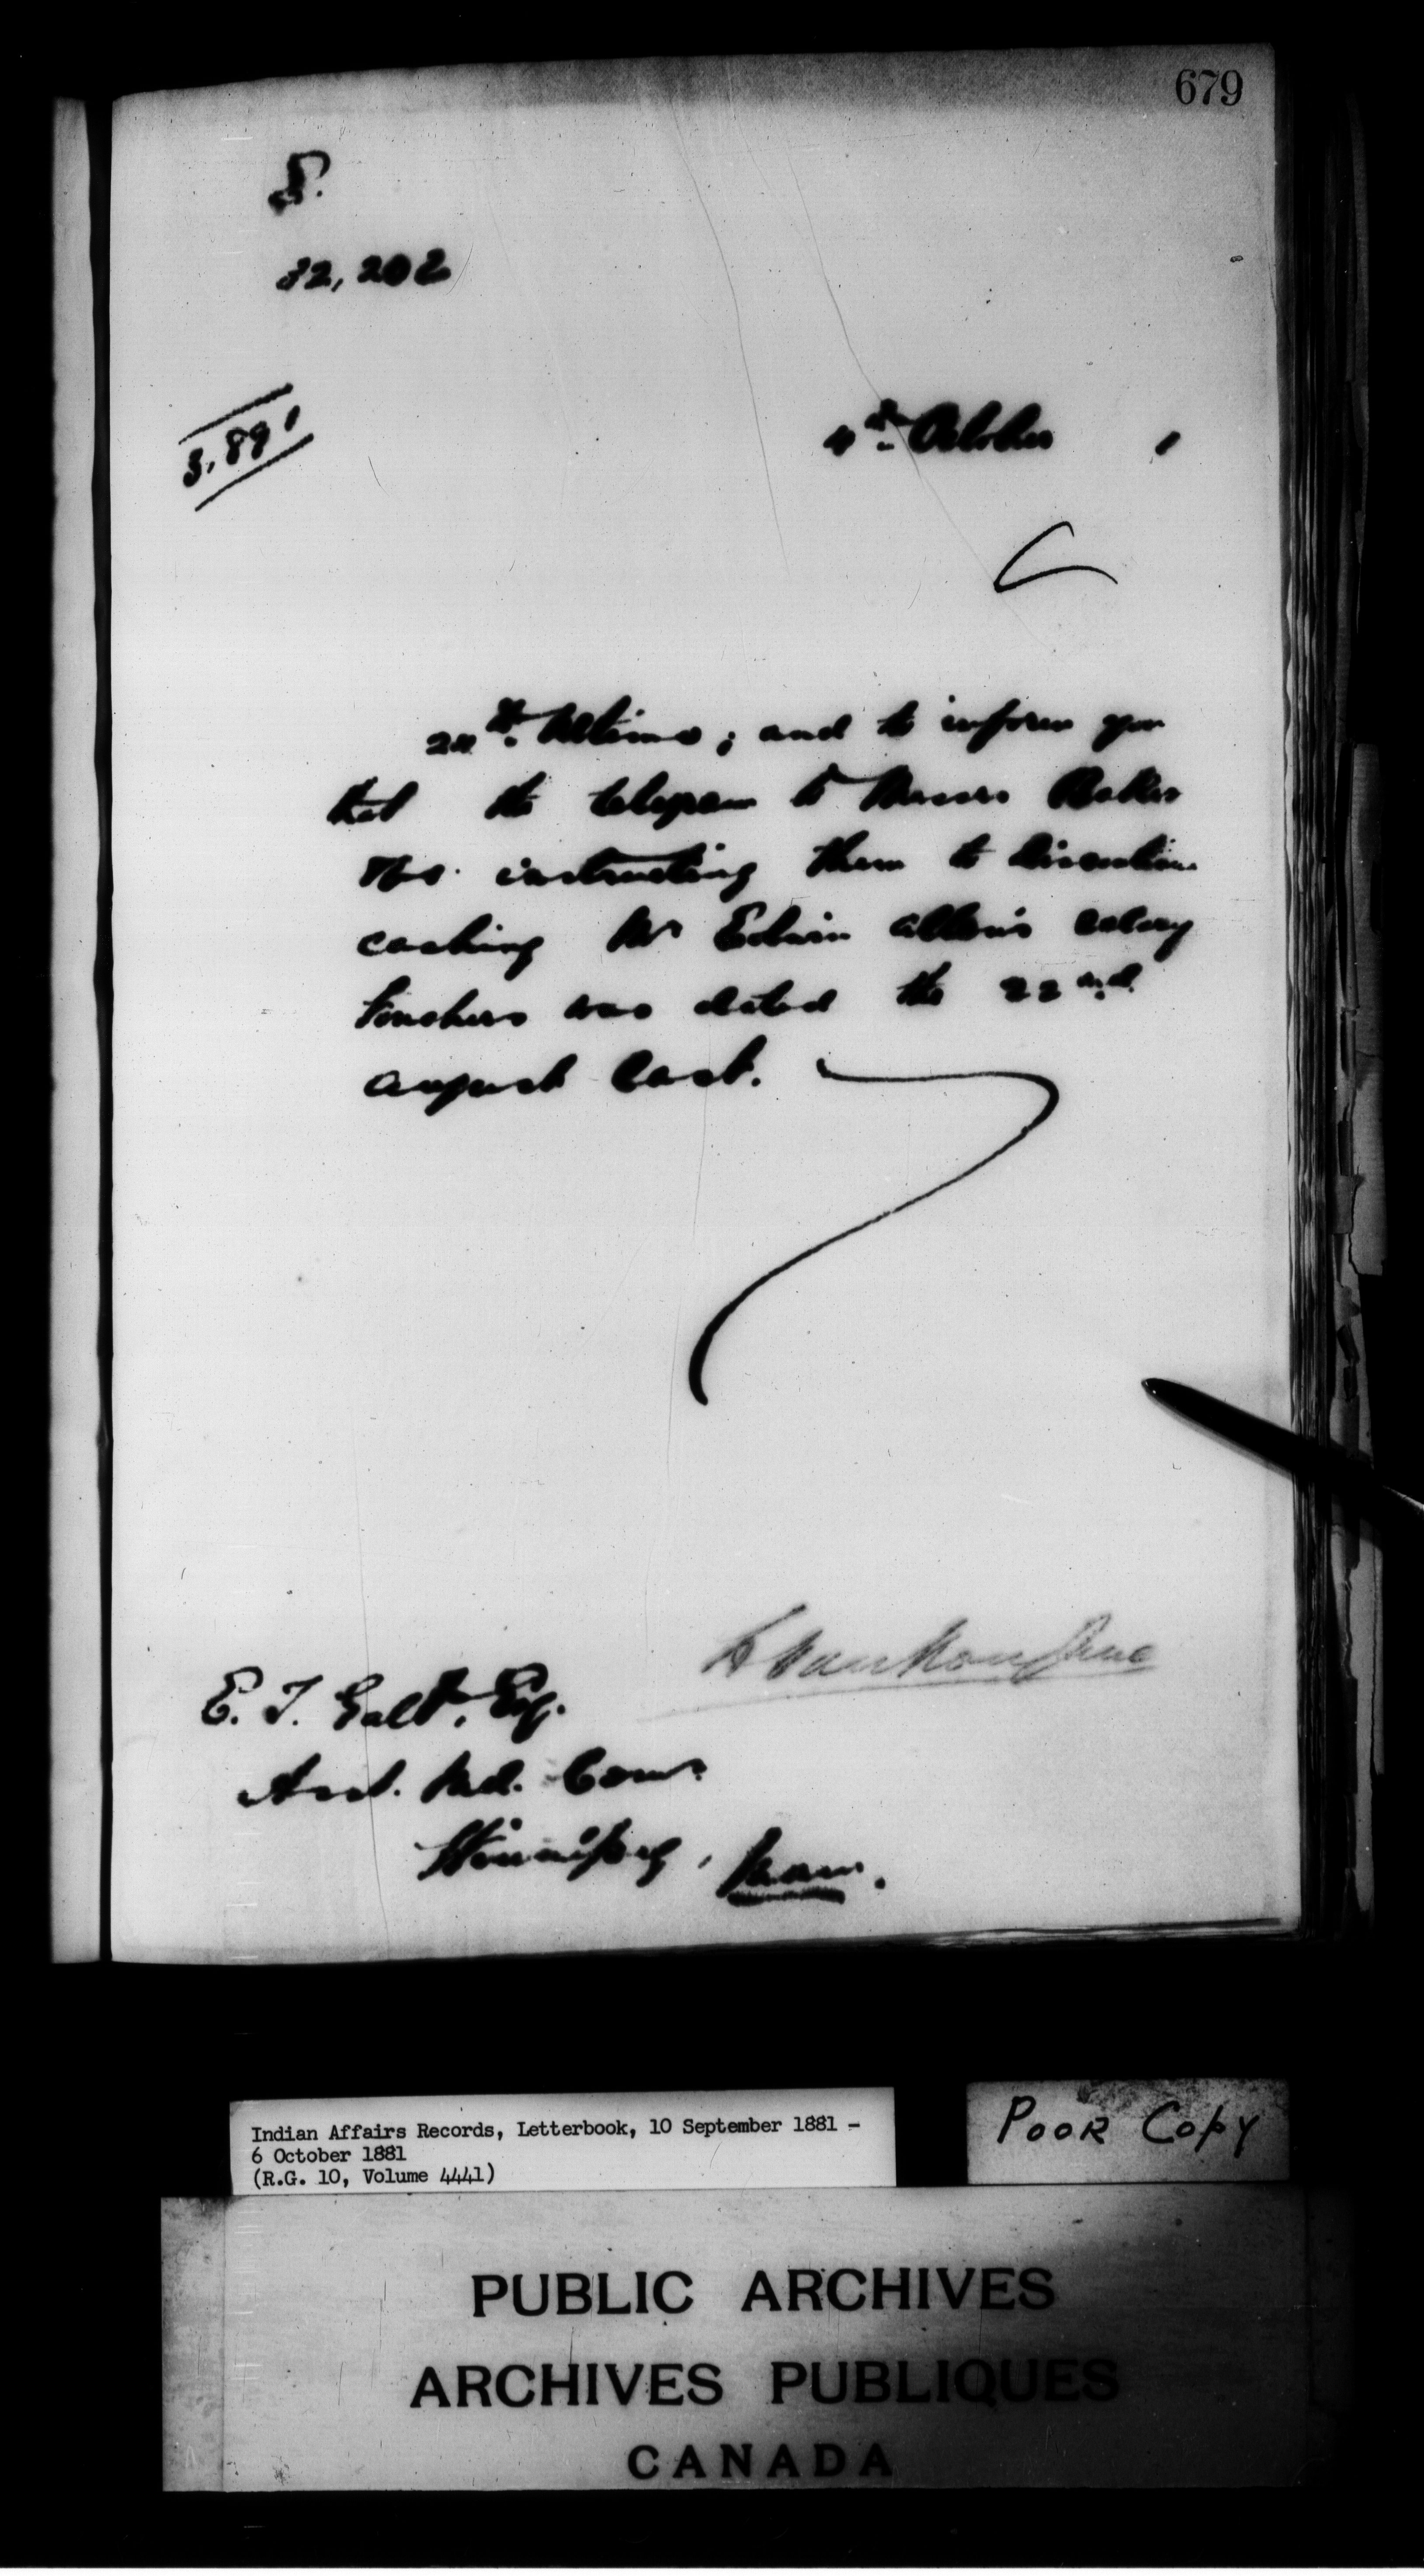 679
S.
32,202
3,891
4th October 1
24th Ultimo; and to inform you
that the telegram to Messrs Baker
&Co. instructing them to discontinue
cashing Mr Edwin Allen's salary
Vouchers was dated the 22nd.
August last.
L VanKoughnet
E. T. Galt, Esq.
Asst. Ind. Comr.
Winnipeg, Man.
Indian Affairs Records, Letterbook, 10 September 1881 -
6 October 1881
(R.G. 10, Volume 4441)
POOR COPY
PUBLIC ARCHIVES
ARCHIVES PUBLIQUES
CANADA